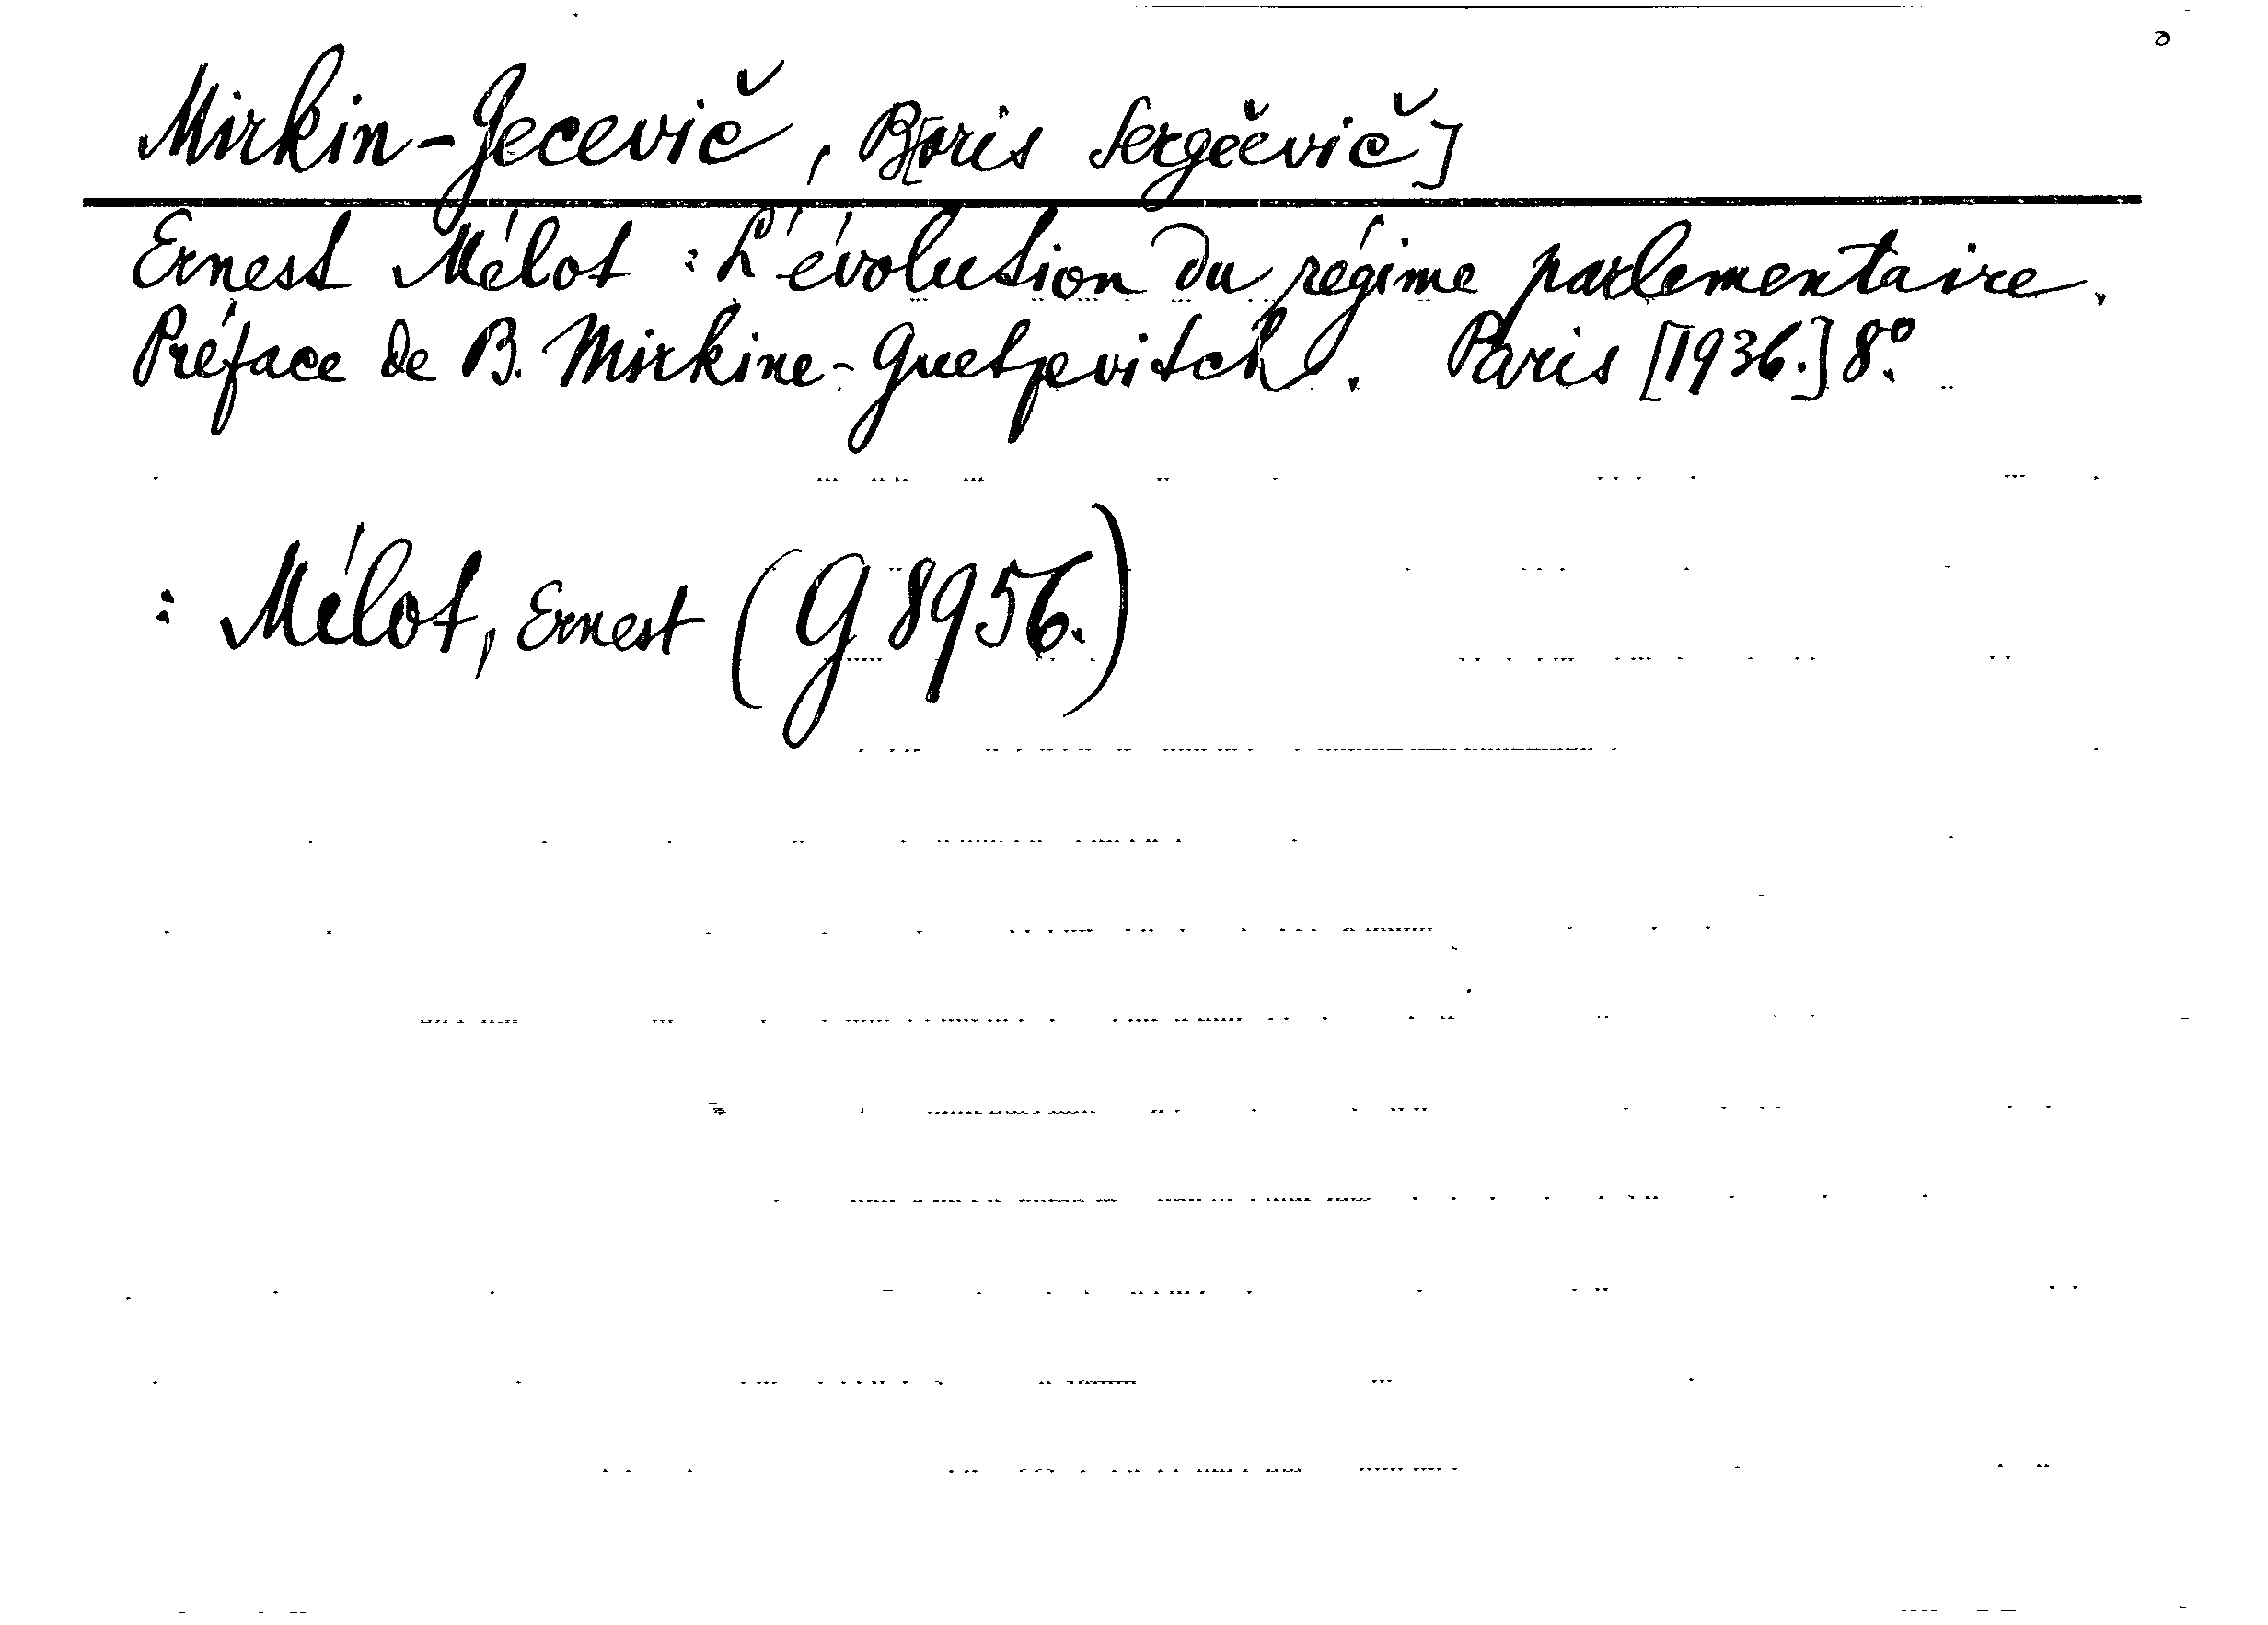 Mirkin-Gecevič, B[oris Sergěevič]
Ernest Mélot : L'évolution du régime parlementaire.
Préface de B. Mirkine-Guetzevitch. Paris [1936.] 8°.
: Mélot, Ernest (G 8956.)